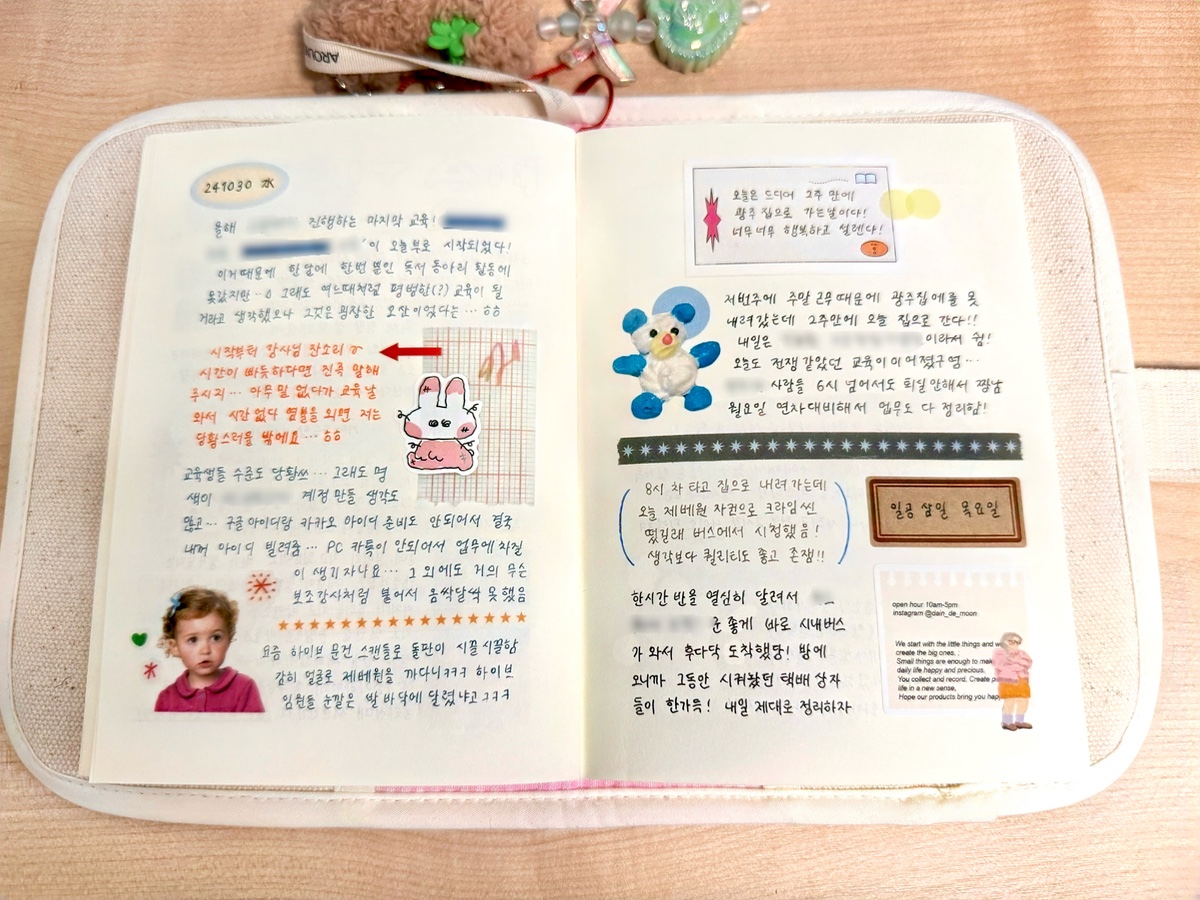 AROUN
241030 水
올해 진행하는 마지막 교육!
'이 오늘부로 시작되었다!
이거 때문에 한달에 한번 뿐인 독서 동아리 활동에
못갔지만… 그래도 여느때처럼 평범한(?) 교육이 될
거라고 생각했으나 그것은 굉장한 오산이었다는… ㅎㅎ
시작부터 강사님 잔소리
시간이 빠듯하다면 진즉 말해
주시지… 아무 말 없다가 교육날
와서 시간 없다 염불을 외면 저는
당황스러울 밖에요… ㅎㅎ
교육생들 수준도 당황쓰… 그래도 명
색이 계정 만들 생각도
않고… 구글아이디랑 카카오 아이디 준비도 안되어서 결국
내꺼 아이디 빌려줌… PC 카톡이 안되어서 업무에 차질
이 생기자나요… 그 외에도 거의 무슨
보조강사처럼 불어서 움싹달싹 못했음
요즘 하이브 문건 스캔들로 돌판이 시끌시끌함
감히 얼굴로 제베원을 까다니ㅋㅋㅋ 하이브
임원들 눈깔은 발 바닥에 달렸냐고 ㅋㅋㅋ
오늘은 드디어 2주 만에
광주 집으로 가는날이다!
너무너무 행복하고 설렌다!
저번주에 주말 근무 때문에 광주집에를 못
내려갔는데 2주만에 오늘 집으로 간다!!
내일은 이라서 쉼!
오늘도 전쟁 같았던 교육이 이어졌구염…
사람들 6시 넘어서도 퇴실 안해서 짱남
월요일 연차대비해서 업무도 다 정리함!
8시 차 타고 집으로 내려가는데
오늘 제베원 자컨으로 크라임씬
떴길래 버스에서 시청했음!
생각보다 퀄리티도 좋고 존잼!!
일공삼일 목요일
한시간 반을 열심히 달려서
운 좋게 바로 시내버스
가 와서 후다닥 도착했당! 방에
오니까 그동안 시켜놨던 택배 상자
들이 한가득! 내일 제대로 정리하자
open hour 10am-5pm
instagram @dain_de_moon
We start with the little things and
create the big ones,
Small things are enough to
daily life happy and precious.
You collect and record. Create
life in a new sense,
Hope our products bring you